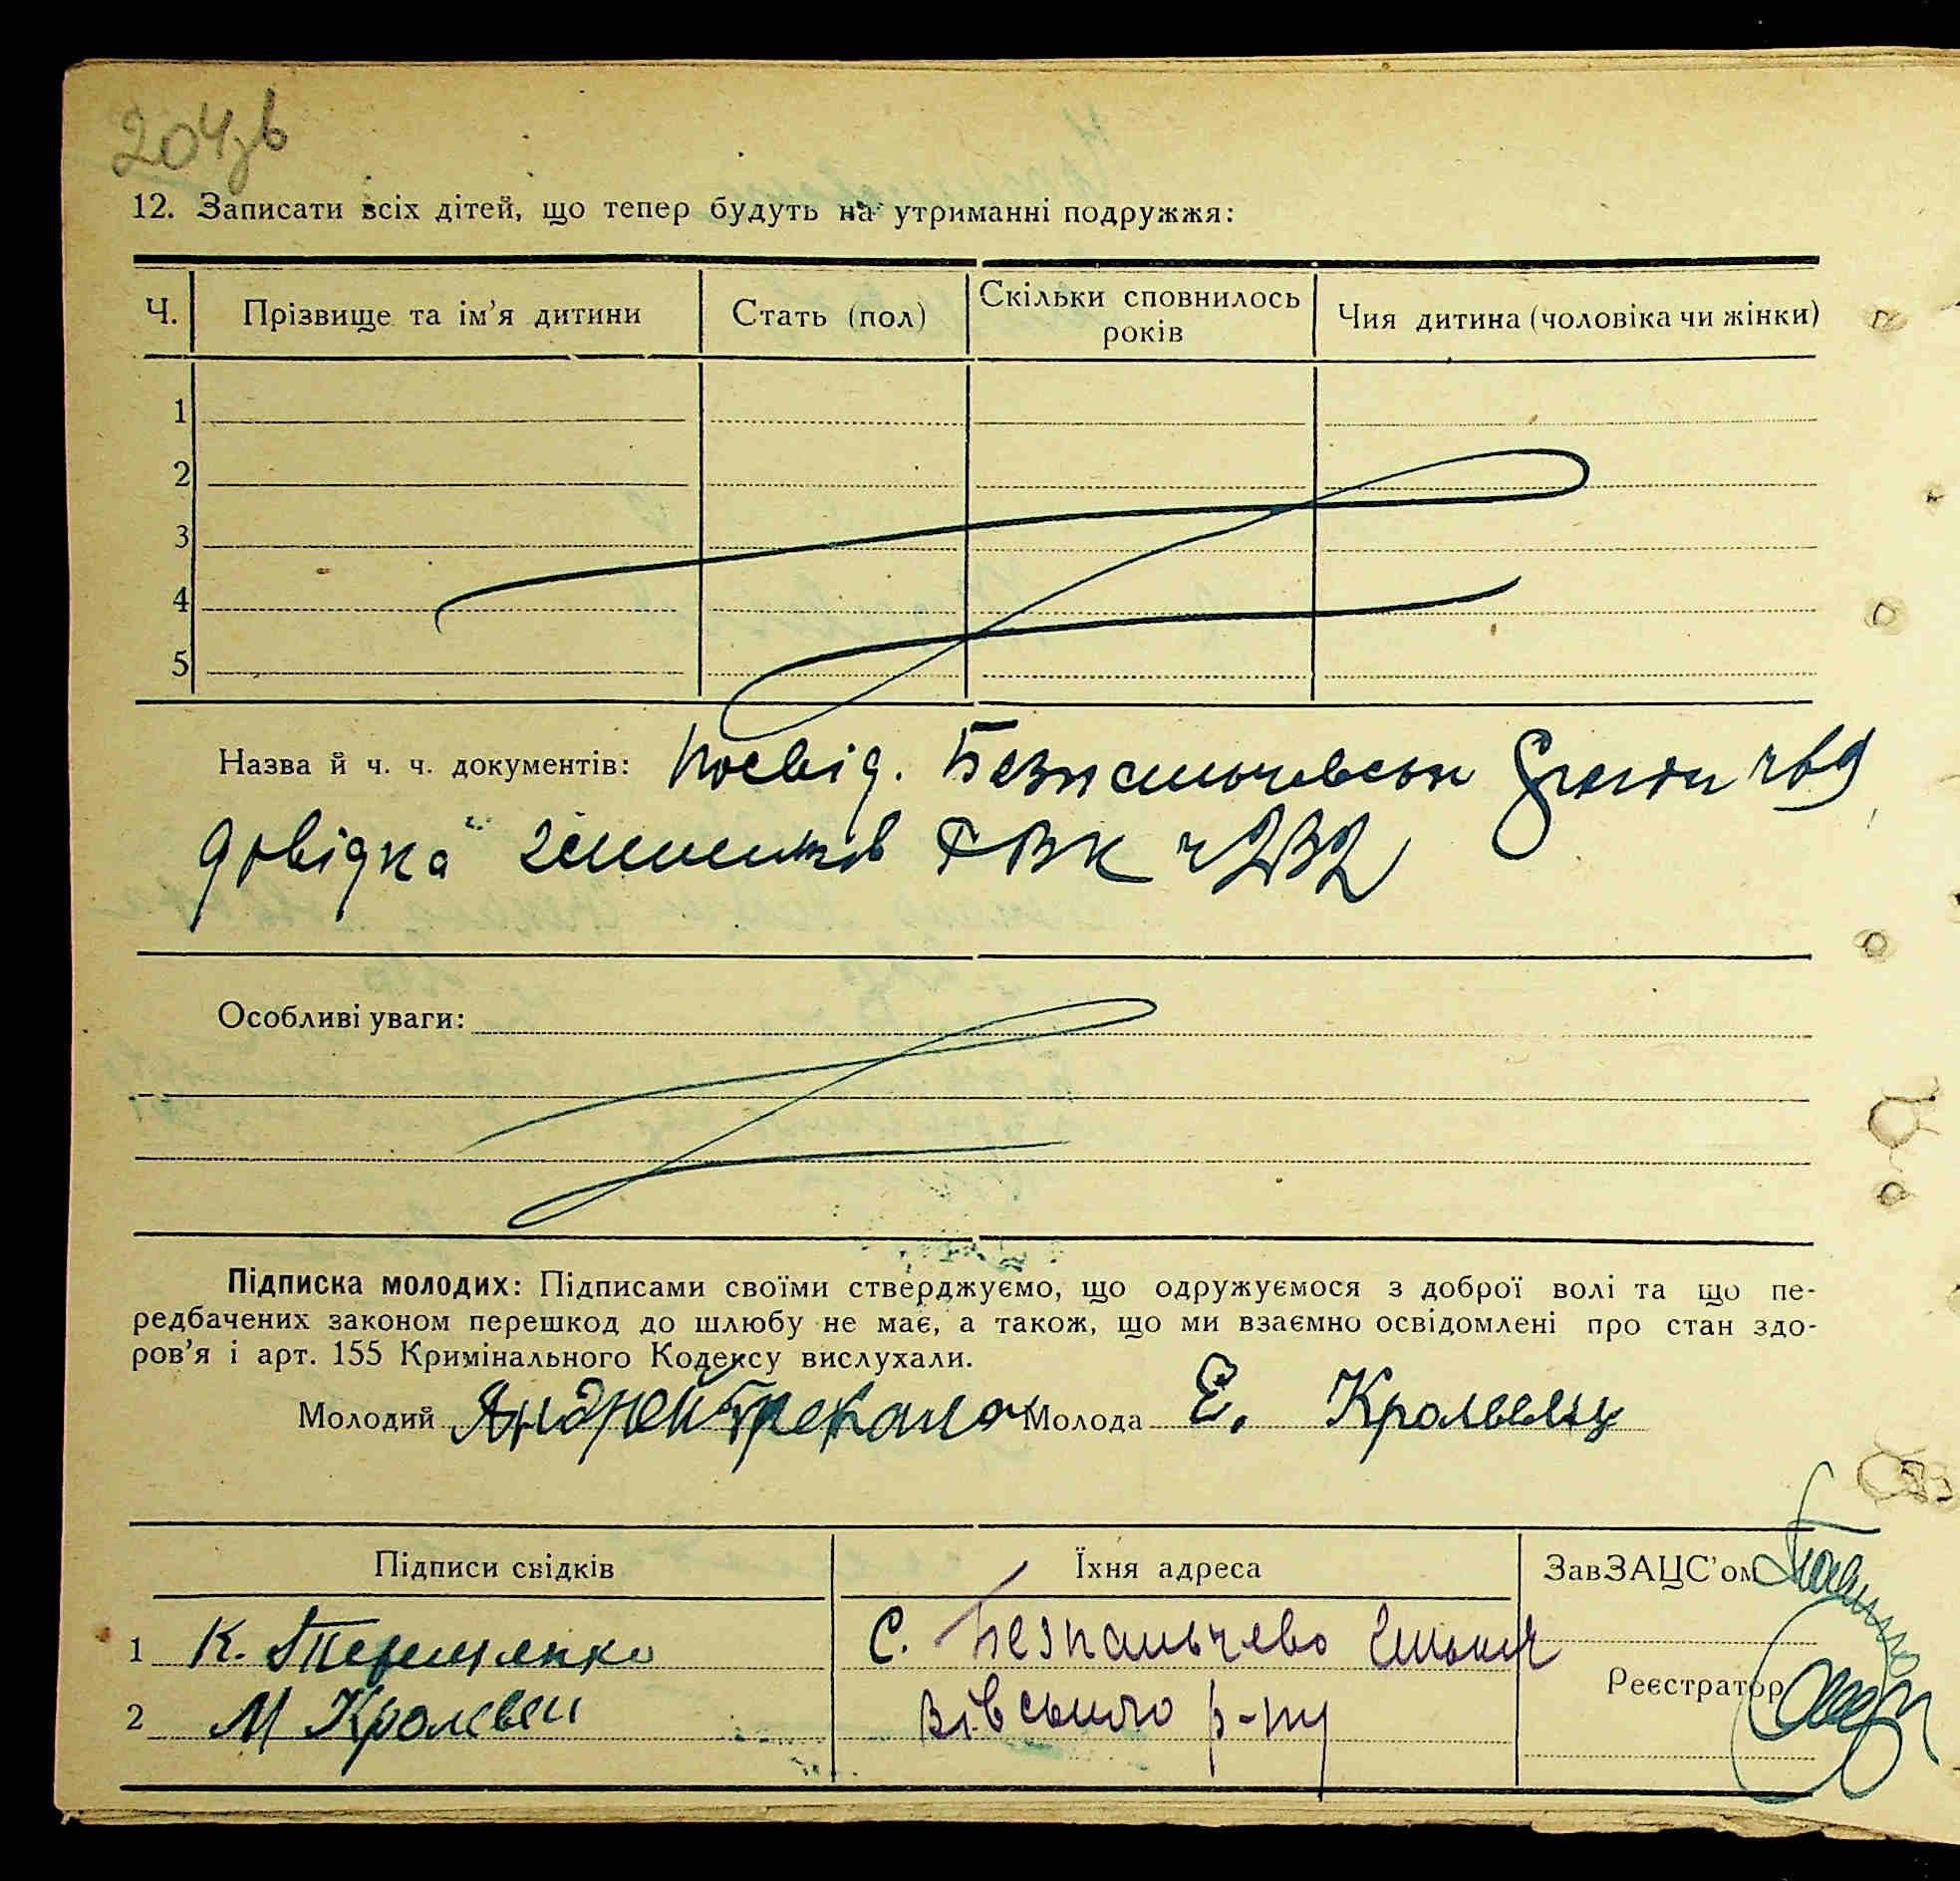 204зв
12. Записати всіх дітей, що тепер будуть на утриманні подружжя:
Ч. Прізвище та ім’я дитини Стать (пол) Скільки сповнилось років Чия дитина (чоловіка чи жінки)
1
2
3
4
5
Назва й ч. ч. документів: Посвід.
довідка РВК ч 232
Особливі уваги:
Підписка молодих: Підписами своїми стверджуємо, що одружуємося з доброї волі та що пе-
редбачених законом перешкод до шлюбу не має, а також, що ми взаємно освідомлені про стан здо-
ров’я і арт. 155 Кримінального Кодексу вислухали.
Молодий Андрей Молода Е. Кролевець
Підписи свідків Їхня адреса ЗавЗАЦС’ом
1 К. Терещенко С. Безпальчево Гельмя
2 М Кролевец зівського р-ну
Реєстратор